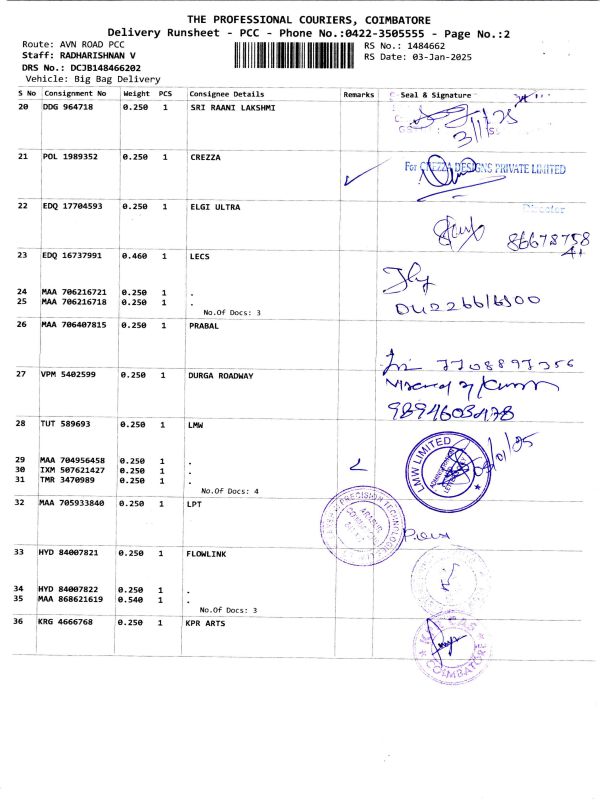 THE PROFESSIONAL COURIERS, COIMBATORE
Delivery Runsheet - PCC - Phone No.:0422-3505555 - Page No.:2
Route: AVN ROAD PCC
RS No.: 1484662
Staff: RADHARISHNAN V
RS Date: 03-Jan-2025
DRS No.: DCJB148466202
Vehicle: Big Bag Delivery
S No Consignment No Weight PCS Consignee Details Remarks Seal & Signature
20 DDG 964718 0.250 1 SRI RAANI LAKSHMI
21 POL 1989352 0.250 1 CREZZA
For CREZZA DESIGNS PRIVATE LIMITED
22 EDQ 17704593 0.250 1 ELGI ULTRA
Director
86678758
23 EDQ 16737991 0.460 1 LECS
24 MAA 706216721 0.250 1 .
25 MAA 706216718 0.250 1 .
No.Of Docs: 3
26 MAA 706407815 0.250 1 PRABAL
27 VPM 5402599 0.250 1 DURGA ROADWAY
9894603478
28 TUT 589693 0.250 1 LMW
LMW LIMITED
29 MAA 704956458 0.250 1 .
30 IXM 507621427 0.250 1 .
31 TMR 3470989 0.250 1 .
No.Of Docs: 4
32 MAA 705933840 0.250 1 LPT
33 HYD 84007821 0.250 1 FLOWLINK
34 HYD 84007822 0.250 1 .
35 MAA 868621619 0.540 1 .
No.Of Docs: 3
36 KRG 4666768 0.250 1 KPR ARTS
COIMBATORE